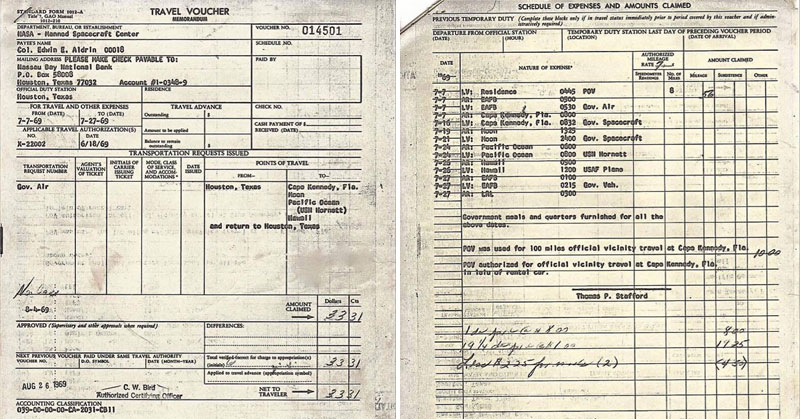 STANDARD FORM 1012-A
Title 7, GAO Manual
1012-210
TRAVEL VOUCHER
MEMORANDUM
DEPARTMENT, BUREAU, OR ESTABLISHMENT
NASA - Manned Spacecraft Center
VOUCHER NO.
014501
PAYEE'S NAME
Col. Edwin E. Aldrin 00018
SCHEDULE NO.
MAILING ADDRESS PLEASE MAKE CHECK PAYABLE TO:
Nassau Bay National Bank
P.O. Box 58008
Houston, Texas 77032 Account #1-0348-9
PAID BY
OFFICIAL DUTY STATION
Houston, Texas
RESIDENCE
FOR TRAVEL AND OTHER EXPENSES
FROM (DATE) TO (DATE)
7-7-69 7-27-69
TRAVEL ADVANCE
Outstanding $
CHECK NO.
APPLICABLE TRAVEL AUTHORIZATION(S)
NO. DATE
X-22002 6/18/69
Amount to be applied
Balance to remain outstanding $
CASH PAYMENT OF $
RECEIVED (DATE)
TRANSPORTATION REQUESTS ISSUED
TRANSPORTATION REQUEST NUMBER
AGENT'S VALUATION OF TICKET
INITIALS OF CARRIER ISSUING TICKET
MODE, CLASS OF SERVICE, AND ACCOMMODATIONS *
DATE ISSUED
POINTS OF TRAVEL
FROM— TO—
Gov. Air Houston, Texas Cape Kennedy, Fla.
Moon
Pacific Ocean
(USN Hornett)
Hawaii
and return to Houston, Texas
8-4-69
AMOUNT CLAIMED
Dollars Cts
33 31
APPROVED (Supervisory and other approvals when required)
DIFFERENCES:
NEXT PREVIOUS VOUCHER PAID UNDER SAME TRAVEL AUTHORITY
VOUCHER NO. D.O. SYMBOL DATE (MONTH-YEAR)
Total verified correct for charge to appropriation(s)
(initials)
33 31
Applied to travel advance (appropriation symbol)
AUG 26 1969
C. W. Bird
Authorized Certifying Officer
NET TO TRAVELER
33 31
ACCOUNTING CLASSIFICATION
039-00-00-00-CA-2031-CB11
SCHEDULE OF EXPENSES AND AMOUNTS CLAIMED
PREVIOUS TEMPORARY DUTY (Complete these blocks only if in travel status immediately prior to period covered by this voucher and if administratively required)
DEPARTURE FROM OFFICIAL STATION
(DATE) (HOUR)
TEMPORARY DUTY STATION
LAST DAY OF PRECEDING VOUCHER PERIOD
(LOCATION) (DATE OF ARRIVAL)
DATE
1969
NATURE OF EXPENSE*
AUTHORIZED MILEAGE RATE
SPEEDOMETER READINGS
NO. OF MILES
AMOUNT CLAIMED
MILEAGE SUBSISTENCE OTHER
7-7 LV: Residence 0445 POV 8 56
7-7 AR: EAFB 0500
7-7 LV: EAFB 0530 Gov. Air
7-7 AR: Cape Kennedy, Fla.
7-16 LV: Cape Kennedy, Fla. 0832 Gov. Spacecraft
7-19 AR: Moon 1325
7-21 LV: Moon 2400 Gov. Spacecraft
7-24 AR: Pacific Ocean 0600
7-24 LV: Pacific Ocean 0800 USN Hornett
7-26 AR: Hawaii 0900
7-26 LV: Hawaii 1200 USAF Plane
7-27 AR: EAFB 0100
7-27 LV: EAFB 0215 Gov. Veh.
7-27 AR: LRL 0300
Government meals and quarters furnished for all the
above dates.
POV was used for 100 miles official vicinity travel at Cape Kennedy, Fla. 10.00
POV authorized for official vicinity travel at Cape Kennedy, Fla.
in leiu of rental car.
Thomas P. Stafford
8.00